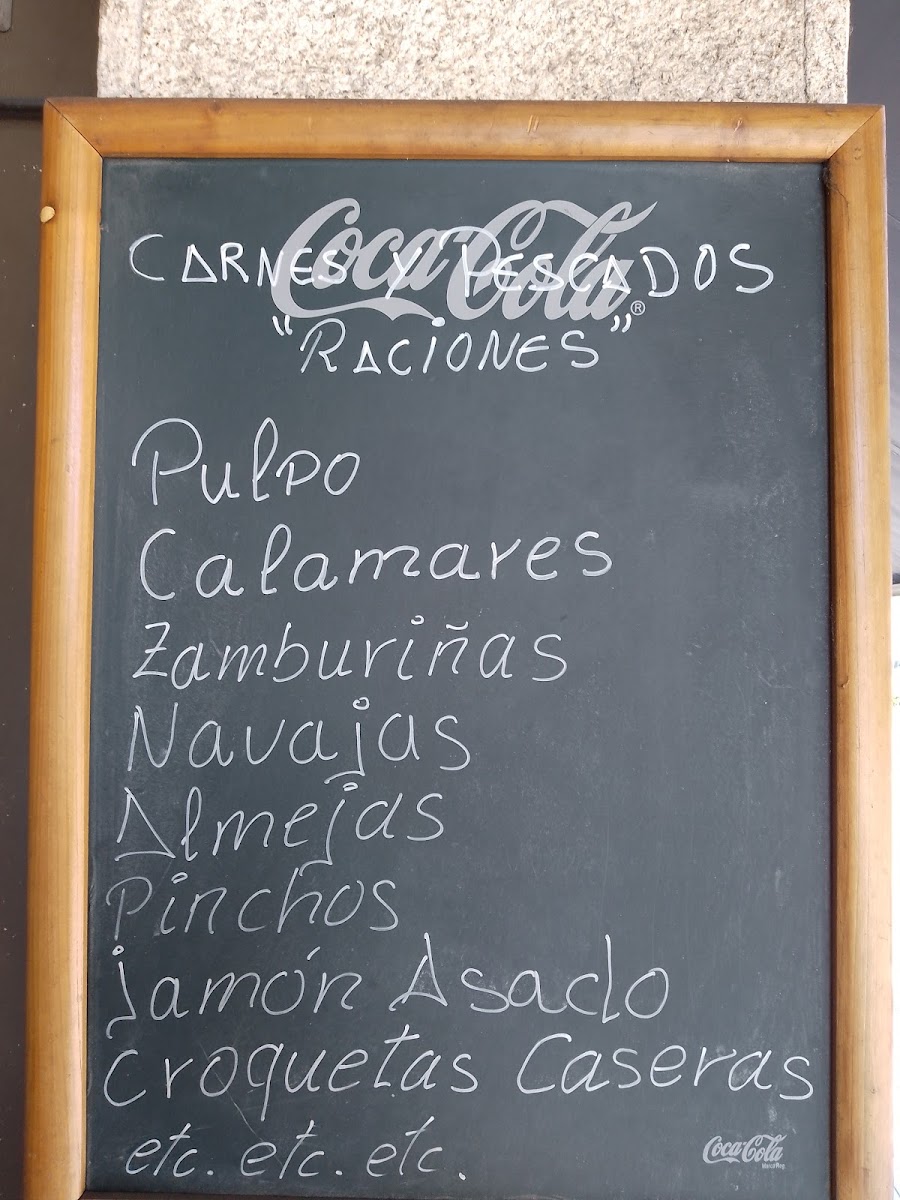 Coca-Cola®
CARNES Y PESCADOS
"RACIONES"
Pulpo
Calamares
Zamburiñas
Navajas
Almejas
Pinchos
jamón Asado
Croquetas Caseras
etc. etc. etc.
Coca-Cola
Marca Reg